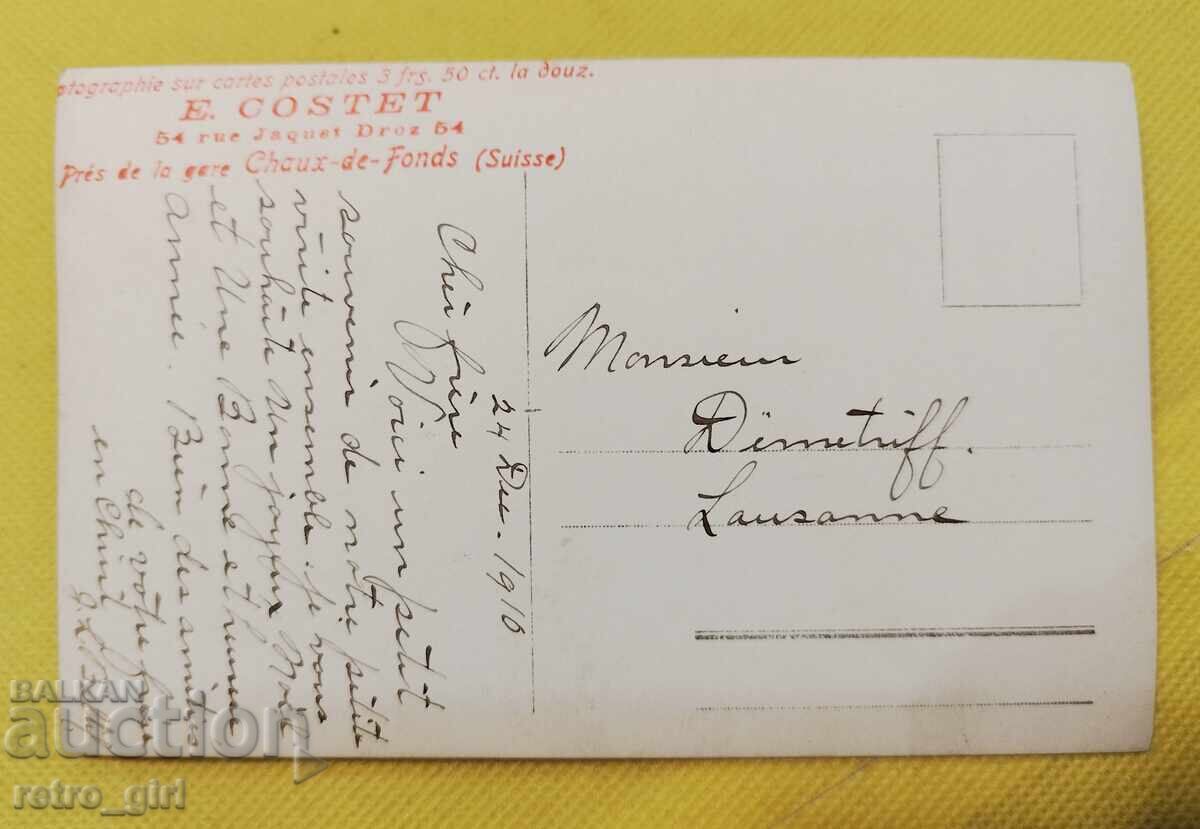 otographie sur cartes postales 3 frs. 50 ct. la douz.
E. COSTET
54 rue Jaquet Droz 54
Prés de la gare Chaux-de-Fonds (Suisse)
24 Dec. 1910
Cher frère
Voici un petit
souvenir de notre petite
visite ensemble. je vous
souhaite Un joyeux Noël
et Une Bonne et heureuse
Année. Bien des amitiés
de votre frère
en Christ
Monsieur
Dëmetriff.
Lausanne
BALKAN
auction
retro_girl